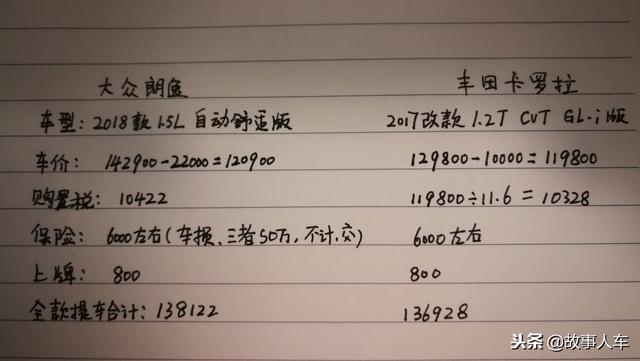 大众朗逸 丰田卡罗拉
车型: 2018款 1.5L 自动舒适版 2017改款 1.2T CVT GL-i版
车价: 142900-22000=120900 129800-10000=119800
购置税: 10422 119800÷11.6=10328
保险: 6000左右(车损、三者50万,不计,交) 6000左右
上牌: 800 800
全款提车合计: 138122 136928
头条 @故事人车